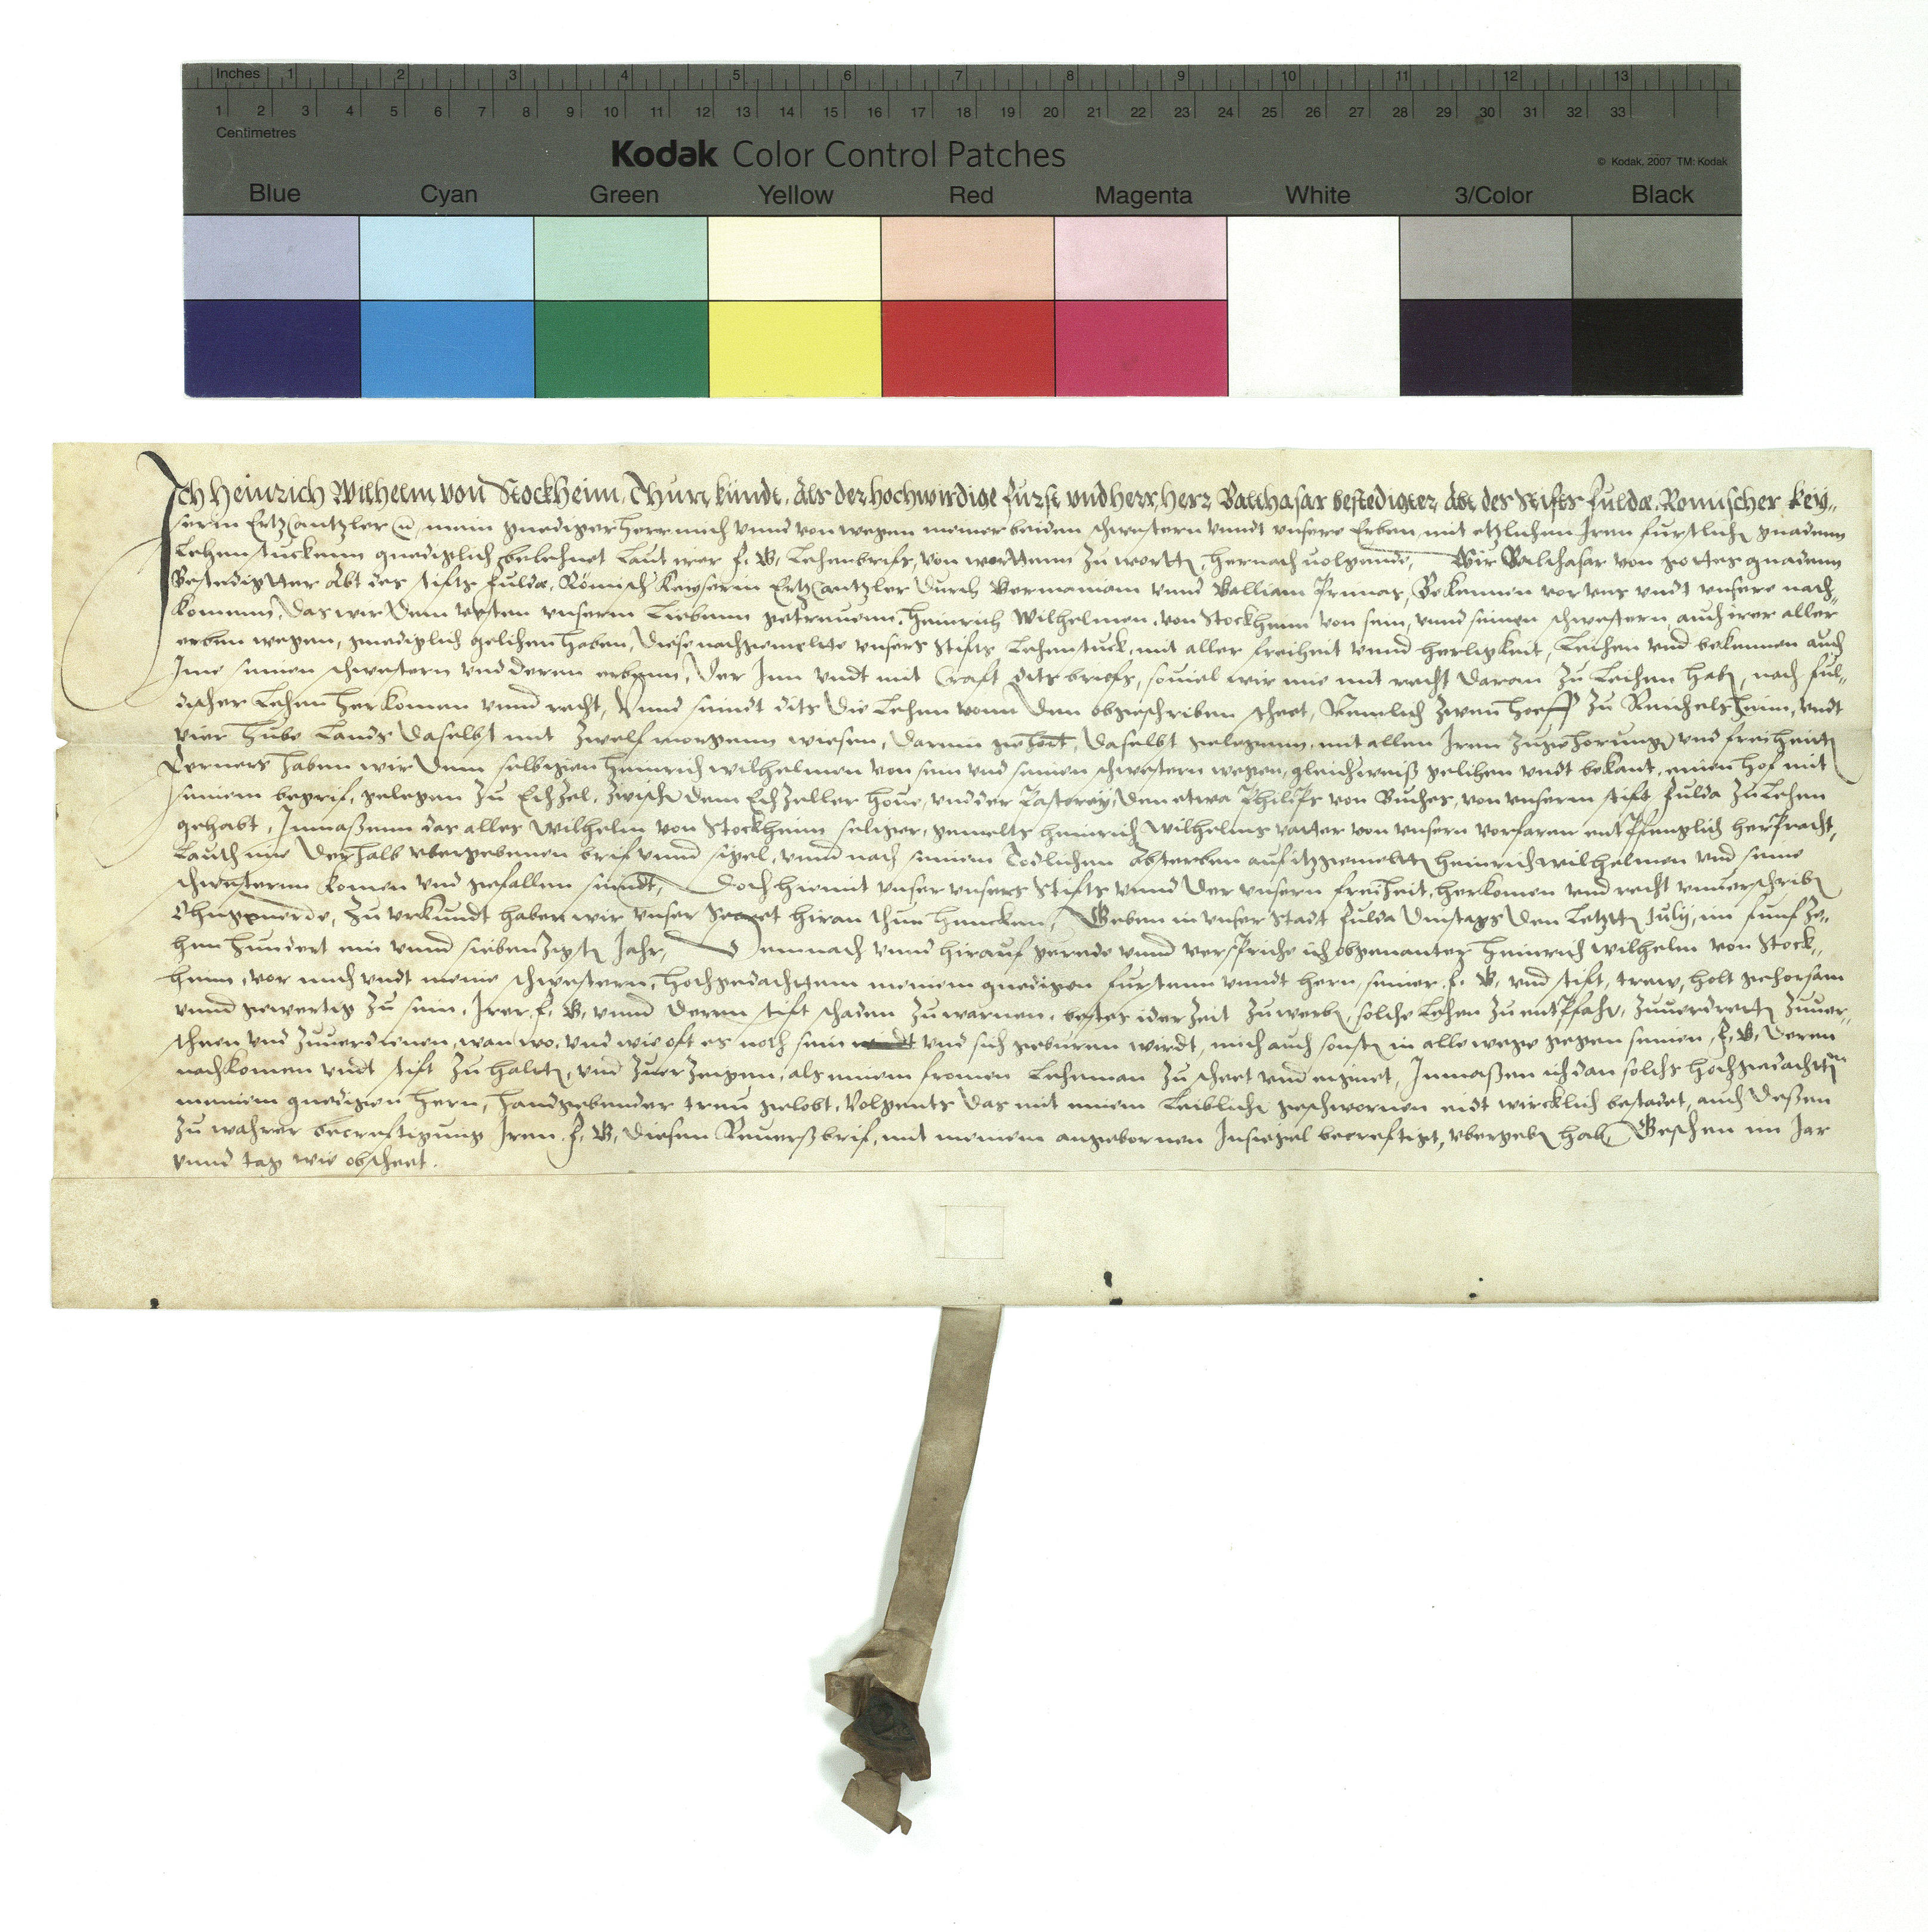 Inches 1 2 3 4 5 6 7 8 9 10 11 12 13
1 2 3 4 5 6 7 8 9 10 11 12 13 14 15 16 17 18 19 20 21 22 23 24 25 26 27 28 29 30 31 32 33
Centimetres
Kodak Color Control Patches
© Kodak, 2007 TM: Kodak
Blue Cyan Green Yellow Red Magenta White 3/Color Black
Ich Heinrich Wilhelm von Stockheim, Thun kundt, Als der hochwirdige furst vnd herr, herr Balthasar bestedigter Abt des Stifts Fulda, Romischer Key„
serin Ertzcantzler, mein gnediger herr mich vnnd von wegen meiner beiden schwestern vnndt vnsere Erben, mit etzlichen Iren furstlichen gnaden
Lehenstuckenn gnediglich belehnet Laut irer f. G. Lehenbriefs, von worttenn zu wortten, hernach uolgende, Wir Balthasar von gottes gnadenn
Bestedigtter Abt des stifts Fulda, Römisch Keyserin Ertzcantzler Durch Germaniam vnnd Galliam Primas, Bekennen vor vns vndt vnsere nach„
komenn, Das wir Dem vesten vnserm Liebenn getreuenn, Heinrich Wilhelmen von Stockheim von sein, vnnd seinen schwestern, auch irer aller
erben wegen, gnediglich gelihen haben, Diese nachgemelte vnsers Stifts Lehenstuck, mit aller freiheit vnnd herligkeit, Leihen vnd bekennen auch
Ime seinen schwestern vnd deren erbenn, Der Inn vndt mit Craft dits briefs, souiel wir ine mit recht daran zu Leihen haben, nach ful„
discher Lehen herkomen vnnd recht, Vnnd seindt dits die Lehen wonn Den obgeschriben stheet, Nemlich zwen hoeff zu Reichelsheim, vndt
vier hube Lands Daselbst mit zwelf morgenn wiesen, Darein gehört, Daselbst gelegenn, mit allen Iren zugehorungen vnd freiheiten
Ferners haben wir Dem selbigen Heinrich Wilhelmen von sein vnd seinen schwestern wegen, gleichweiß gelihen vndt bekant, einen hof mit
seinem begrif, gelegen zu Echzel, zwischen dem Echzeller houe, vnd der Pastorey, Den etwa Philips von Buches, von vnserm stift Fulda zu Lehen
gehabt, Inmaßenn das alles Wilhelm von Stockheim seliger, gemelts Heinrich Wilhelms vatter von vnsern vorfaren entpfenglich herpracht,
Lauth ime Derhalb vbergebenen brif vnnd sigel, vnnd nach seinem Tödlichen Absterben auf itzgemelten Heinrich Wilhelmen vnd seine
schwesternn komen vnd gefallen seindt, Doch hiemit vnser vnsers Stifts vnnd Der vnsern freiheit, herkomen vnd recht vnuerschriben
Ohngeuerde, Zu vrkundt haben wir vnser Secret hiran thun hencken, Geben in vnser Stadt Fulda Dinstags Den Letzten July, im funf ze„
hen hundert ein vnnd siebenzigsten Jahr, Demnach vnnd hirauf gerede vnnd verspriche ich obgenanter Heinrich Wilhelm von Stock„
heim, vor mich vndt meine schwestern, hochgedachttem meinem gnedigen furstenn vnndt hern, seiner f. G. vnd stift, trew, holt gehorsam
vnnd gewertig zu sein, Irer f. G. vnnd Deren stift schaden zu warnen, bestes ider zeit zu werben, solche Lehen zu entpfahen, zuuerdretten zuuer„
stheen vnd zuuerdienen, wan wo, vnd wie oft es noth sein vnd sich geburen wirdt, mich auch sonsten in alle wege gegen seinen f. G. Deren
nachkomen vndt stift zu halten, vnd zuerzeigen, als einem fromen Lehenman zu stheet vnd eignet, Inmaßen ich dan solchs hochgedachtten
meinem gnedigen hern, handgebender treu gelobt, Volgents Das mit einem Leiblichen geschwornen eidt wircklich bestadet, auch Deßen
zu wahrer becreftigung Iren f. G. Diesen Reuerßbrif, mit meinem angebornen Insiegel becreftiget, vbergeben hab, Geschen im Jar
vnnd tag wie obstheet.